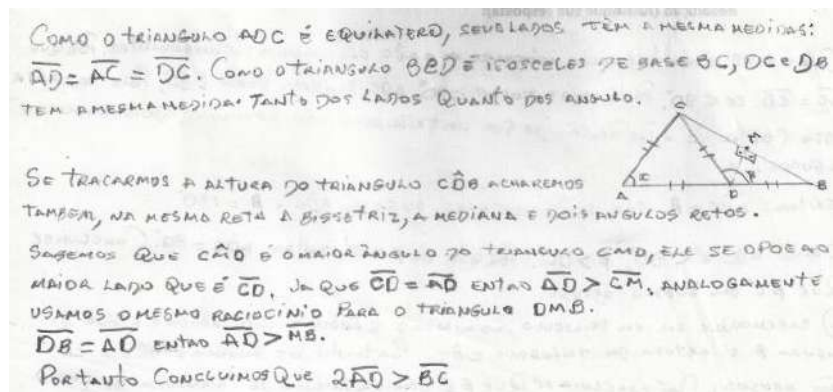 COMO O TRIANGULO ADC É EQUILATERO, SEUS LADOS TÊM A MESMA MEDIDAS:
AD = AC = DC. COMO O TRIANGULO BCD É ISOSCELES DE BASE BC, DC e DB
TEM A MESMA MEDIDA. TANTO DOS LADOS QUANTO DOS ANGULO.
C
M
A
D
B
SE TRACARMOS A ALTURA DO TRIANGULO CDB ACHAREMOS
TAMBEM, NA MESMA RETA A BISSETRIZ, A MEDIANA E DOIS ANGULOS RETOS.
SABEMOS QUE CMD E O MAIOR ÂNGULO DO TRIANGULO CMD, ELE SE OPOE AO
MAIOR LADO QUE É CD. JA QUE CD = AD ENTAO AD > CM. ANALOGAMENTE
USAMOS O MESMO RACIOCINIO PARA O TRIANGULO DMB.
DB = AD ENTAO AD > MB.
PORTANTO CONCLUIMOS QUE 2AD > BC